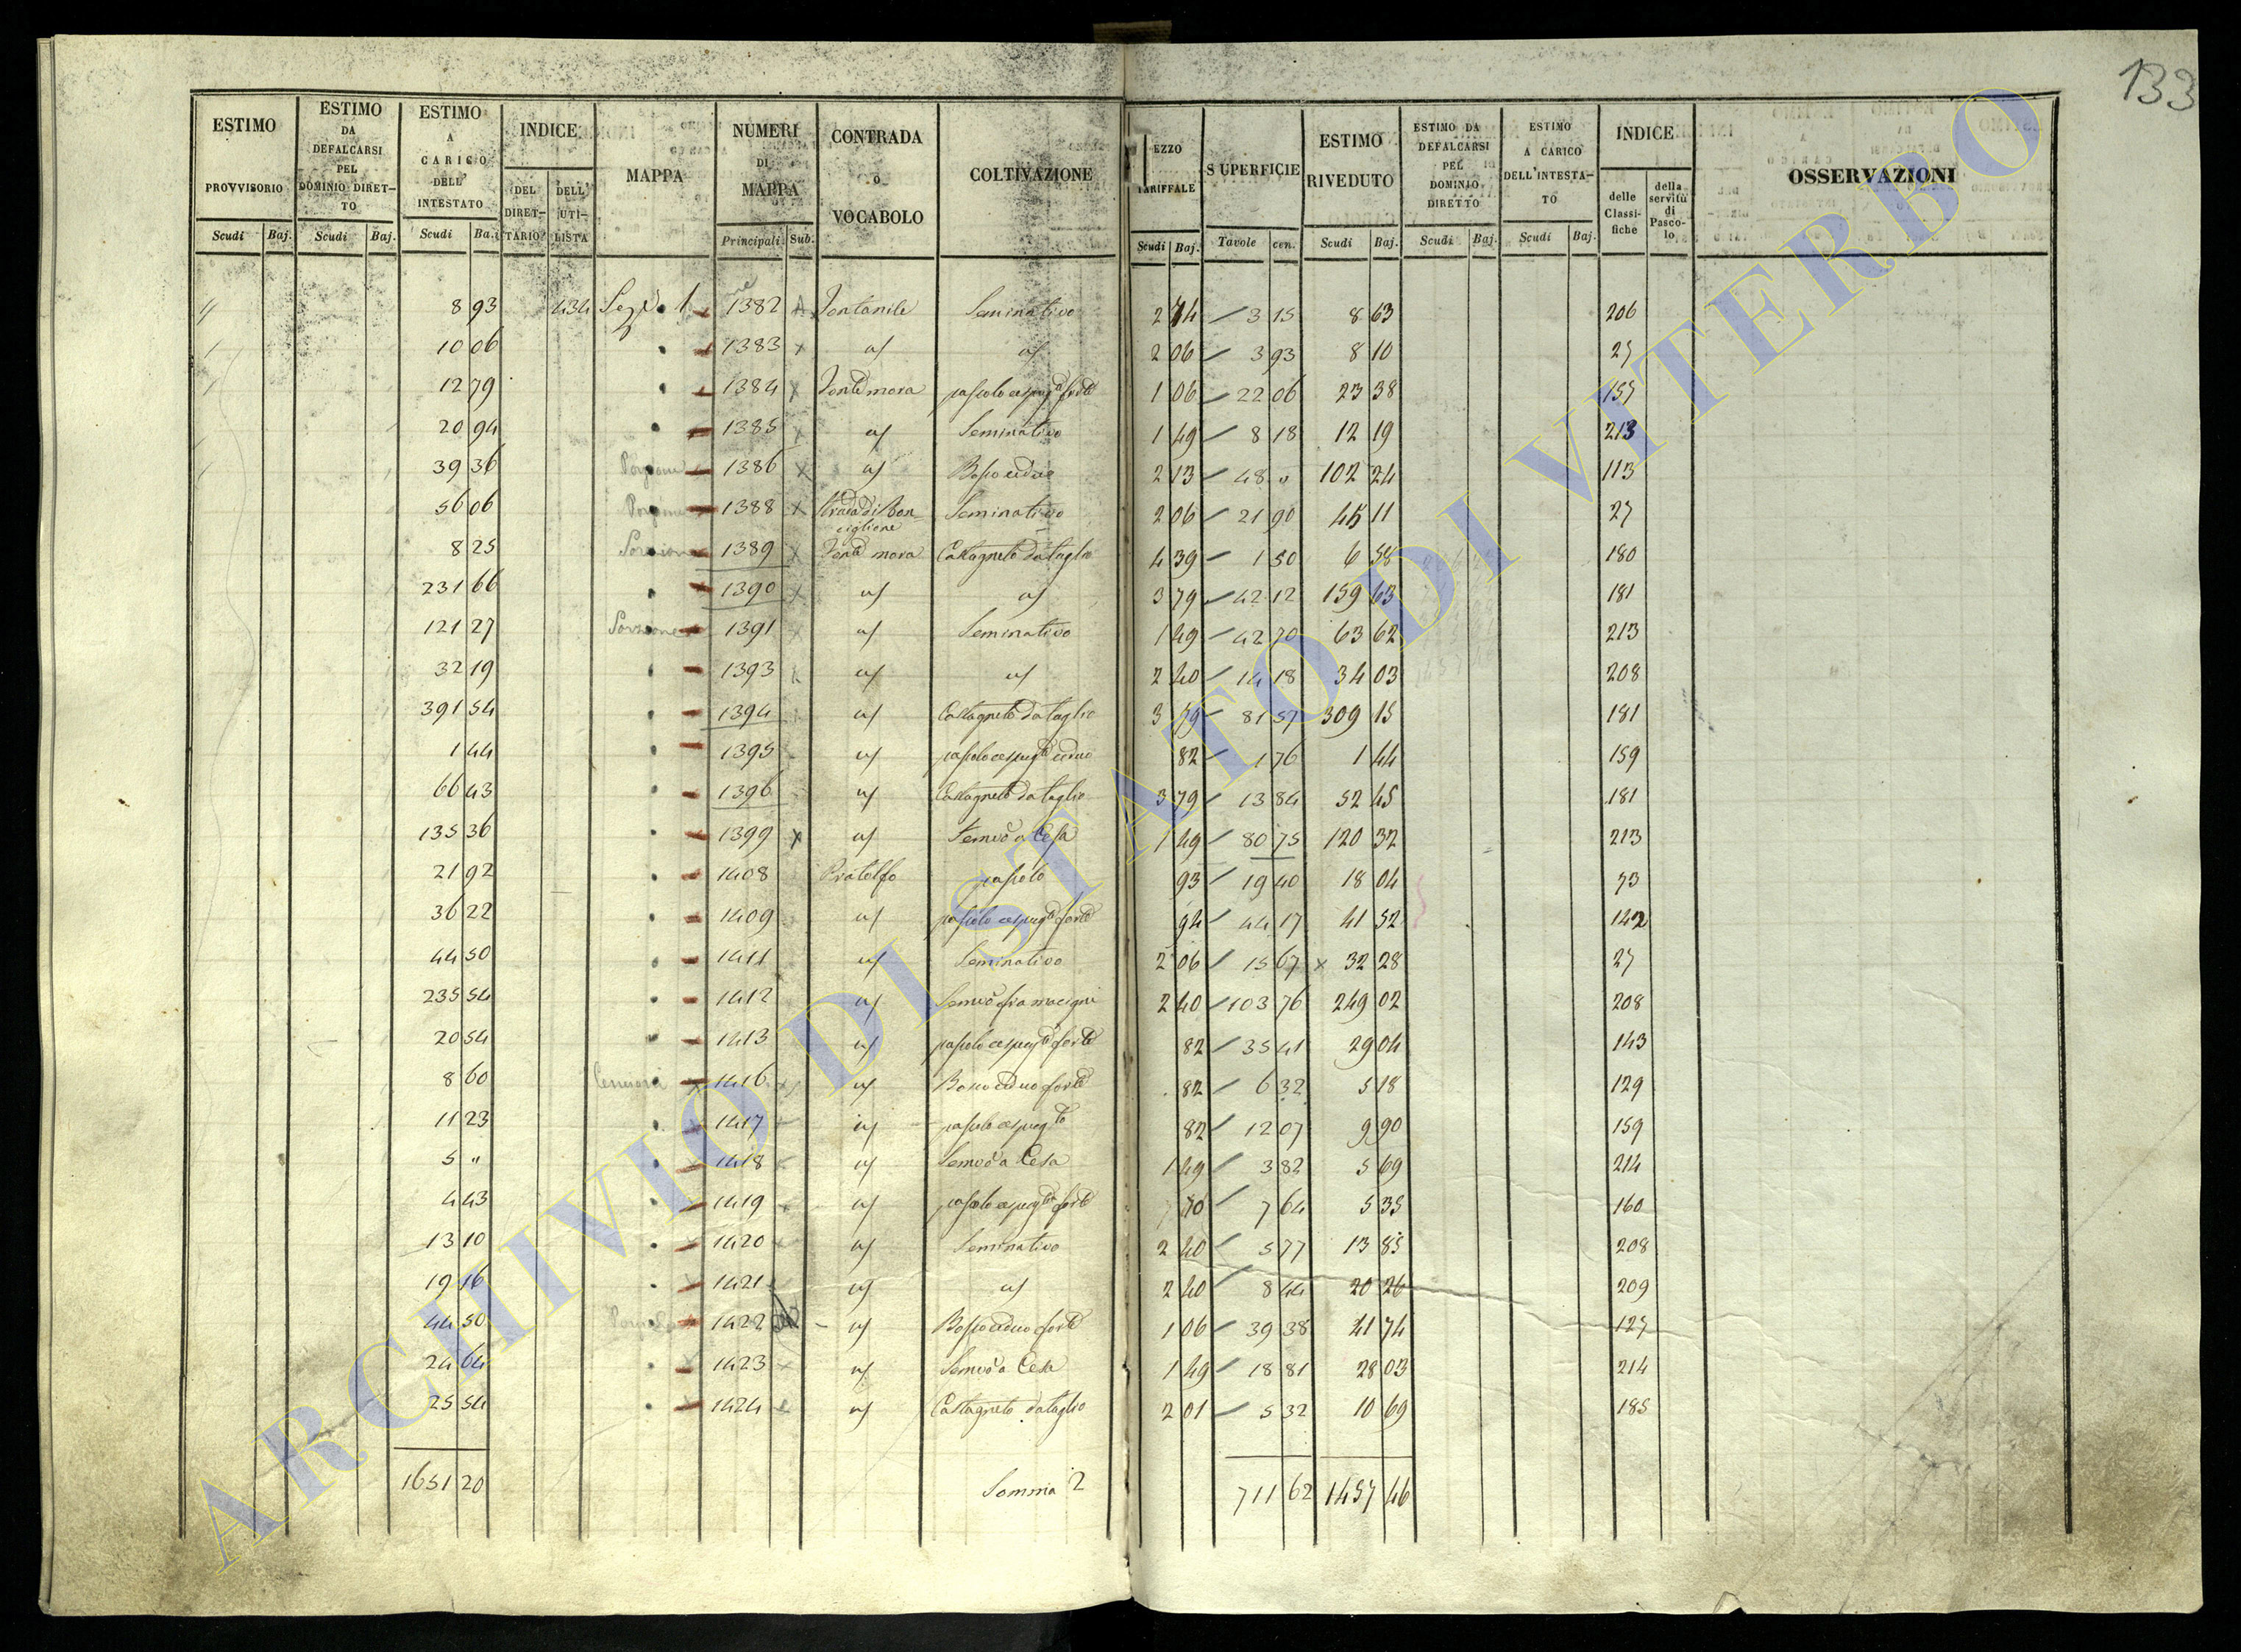 133
ESTIMO PROVVISORIO | ESTIMO DA DEFALCARSI PEL DOMINIO DIRETTO | ESTIMO A CARICO DELL' INTESTATO | INDICE | MAPPA | NUMERI DI MAPPA | CONTRADA O VOCABOLO | COLTIVAZIONE | EZZO TARIFFALE | SUPERFICIE | ESTIMO RIVEDUTO | ESTIMO DA DEFALCARSI PEL DOMINIO DIRETTO | ESTIMO A CARICO DELL'INTESTATO | INDICE | OSSERVAZIONI
DEL DIRETTARIO | DELL' UTILISTA | delle Classifiche | della servitù di Pascolo
Scudi | Baj. | Scudi | Baj. | Scudi | Ba. | Principali | Sub. | Scudi | Baj. | Tavole | cen. | Scudi | Baj. | Scudi | Baj. | Scudi | Baj.
8 93 | 434 | Sez. 1 | 1382 | Fontanile | Seminativo | 2 74 | 3 15 | 8 63 | 206
10 06 | 1383 | 2 06 | 3 93 | 8 10 | 27
12 79 | 1384 | 1 06 | 22 06 | 23 38 | 157
20 94 | 1385 | Seminativo | 1 49 | 8 18 | 12 19 | 213
39 36 | 1386 | Bosco ceduo | 2 13 | 48 " | 102 24 | 113
56 06 | 1388 | Strada di Ronciglione | Seminativo | 2 06 | 21 90 | 45 11 | 27
8 25 | Porzione | 1389 | Castagneto da taglio | 4 39 | 1 50 | 6 58 | 180
231 66 | 1390 | 3 79 | 42 12 | 159 63 | 181
121 27 | Porzione | 1391 | Seminativo | 1 49 | 42 70 | 63 62 | 213
32 19 | 1393 | 2 40 | 14 18 | 34 03 | 208
391 54 | 1394 | Castagneto da taglio | 3 79 | 81 57 | 309 15 | 181
1 44 | 1395 | 82 | 1 76 | 1 44 | 159
66 43 | 1396 | Castagneto da taglio | 3 79 | 13 84 | 52 45 | 181
135 36 | 1399 | Semvo a Cesa | 1 49 | 80 75 | 120 32 | 213
21 92 | 1408 | Pratolfo | pascolo | 93 | 19 40 | 18 04 | 73
36 22 | 1409 | 94 | 44 17 | 41 52 | 142
44 50 | 1411 | Seminativo | 2 06 | 15 67 | 32 28 | 27
235 54 | 1412 | Semvo fra macigni | 2 40 | 103 76 | 249 02 | 208
20 54 | 1413 | 82 | 35 41 | 29 04 | 143
8 60 | 1416 | 82 | 6 32 | 5 18 | 129
11 23 | 1417 | 82 | 12 07 | 9 90 | 159
5 " | 1418 | Semvo a Cesa | 1 49 | 3 82 | 5 69 | 214
4 43 | 1419 | 70 | 7 64 | 5 35 | 160
13 10 | 1420 | Seminativo | 2 40 | 5 77 | 13 85 | 208
19 16 | 1421 | 2 40 | 8 44 | 20 26 | 209
44 50 | 1422 | 1 06 | 39 38 | 41 74 | 127
24 64 | 1423 | Semvo a Cesa | 1 49 | 18 81 | 28 03 | 214
25 54 | 1424 | Castagneto da taglio | 2 01 | 5 32 | 10 69 | 185
1651 20 | Somma 2 | 711 62 | 1457 46
ARCHIVIO DI STATO DI VITERBO